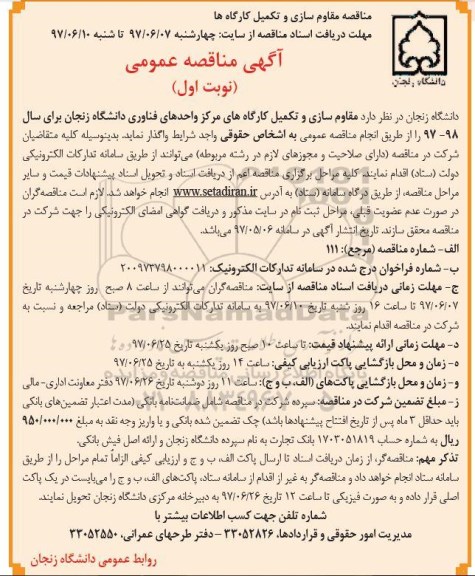 مناقصه مقاوم سازی و تکمیل کارگاه ها
مهلت دریافت اسناد مناقصه از سایت: چهارشنبه ۹۷/۰۶/۰۷ تا شنبه ۹۷/۰۶/۱۰
دانشگاه زنجان
آگهی مناقصه عمومی
(نوبت اول)
دانشگاه زنجان در نظر دارد مقاوم سازی و تکمیل کارگاه های مرکز واحدهای فناوری دانشگاه زنجان برای سال
۹۸- ۹۷ را از طریق انجام مناقصه عمومی به اشخاص حقوقی واجد شرایط واگذار نماید. بدینوسیله کلیه متقاضیان
شرکت در مناقصه (دارای صلاحیت و مجوزهای لازم در رشته مربوطه) می‌توانند از طریق سامانه تدارکات الکترونیکی
دولت (ستاد) اقدام نمایند. کلیه مراحل برگزاری مناقصه اعم از دریافت اسناد و تحویل اسناد پیشنهادات قیمت و سایر
مراحل مناقصه، از طریق درگاه سامانه (ستاد) به آدرس www.setadiran.ir انجام خواهد شد. لازم است مناقصه‌گران
در صورت عدم عضویت قبلی، مراحل ثبت نام در سایت مذکور و دریافت گواهی امضای الکترونیکی را جهت شرکت در
مناقصه محقق سازند. تاریخ انتشار آگهی در سامانه ۹۷/۰۵/۰۶ می‌باشد.
الف- شماره مناقصه (مرجع): ۱۱۱
ب- شماره فراخوان درج شده در سامانه تدارکات الکترونیک: ۲۰۰۹۷۳۷۹۸۰۰۰۰۱۱
ج- مهلت زمانی دریافت اسناد مناقصه از سایت: مناقصه‌گران می‌توانند از ساعت ۸ صبح روز چهارشنبه تاریخ
۹۷/۰۶/۰۷ تا ساعت ۱۶ روز شنبه تاریخ ۹۷/۰۶/۱۰ به سامانه تدارکات الکترونیکی دولت (ستاد) مراجعه و نسبت به
شرکت در مناقصه اقدام نمایند.
د- مهلت زمانی ارائه پیشنهاد قیمت: تا ساعت ۱۰ صبح روز یکشنبه تاریخ ۹۷/۰۶/۲۵
ه- زمان و محل بازگشایی پاکت ارزیابی کیفی: ساعت ۱۴ روز یکشنبه به تاریخ ۹۷/۰۶/۲۵
و- زمان و محل بازگشایی پاکت‌های (الف، ب و ج): ساعت ۱۱ روز دوشنبه تاریخ ۹۷/۰۶/۲۶ دفتر معاونت اداری- مالی
ز- مبلغ تضمین شرکت در مناقصه: سپرده شرکت در مناقصه شامل ضمانت‌نامه بانکی (مدت اعتبار تضمین‌های بانکی
باید حداقل ۳ ماه پس از تاریخ افتتاح پیشنهادها باشد) چک تضمین شده بانکی و یا واریز وجه نقد به مبلغ ۹۵۰/۰۰۰/۰۰۰
ریال به شماره حساب ۱۷۰۳۰۵۱۸۱۹ بانک تجارت به نام سپرده دانشگاه زنجان و ارائه اصل فیش بانکی.
تذکر مهم: مناقصه‌گر، از زمان دریافت اسناد تا ارسال پاکت الف، ب و ج و ارزیابی کیفی الزاماً تمام مراحل را از طریق
سامانه ستاد انجام خواهد داد و مناقصه‌گر به غیر از اقدام از سامانه ستاد، پاکت‌های الف، ب و ج را می‌بایست در یک پاکت
اصلی قرار داده و به صورت فیزیکی تا ساعت ۱۲ تاریخ ۹۷/۰۶/۲۶ به دبیرخانه مرکزی دانشگاه زنجان تحویل نمایند.
شماره تلفن جهت کسب اطلاعات بیشتر با
مدیریت امور حقوقی و قراردادها، ۳۳۰۵۲۸۲۶ – دفتر طرحهای عمرانی، ۳۳۰۵۲۵۵۰
روابط عمومی دانشگاه زنجان